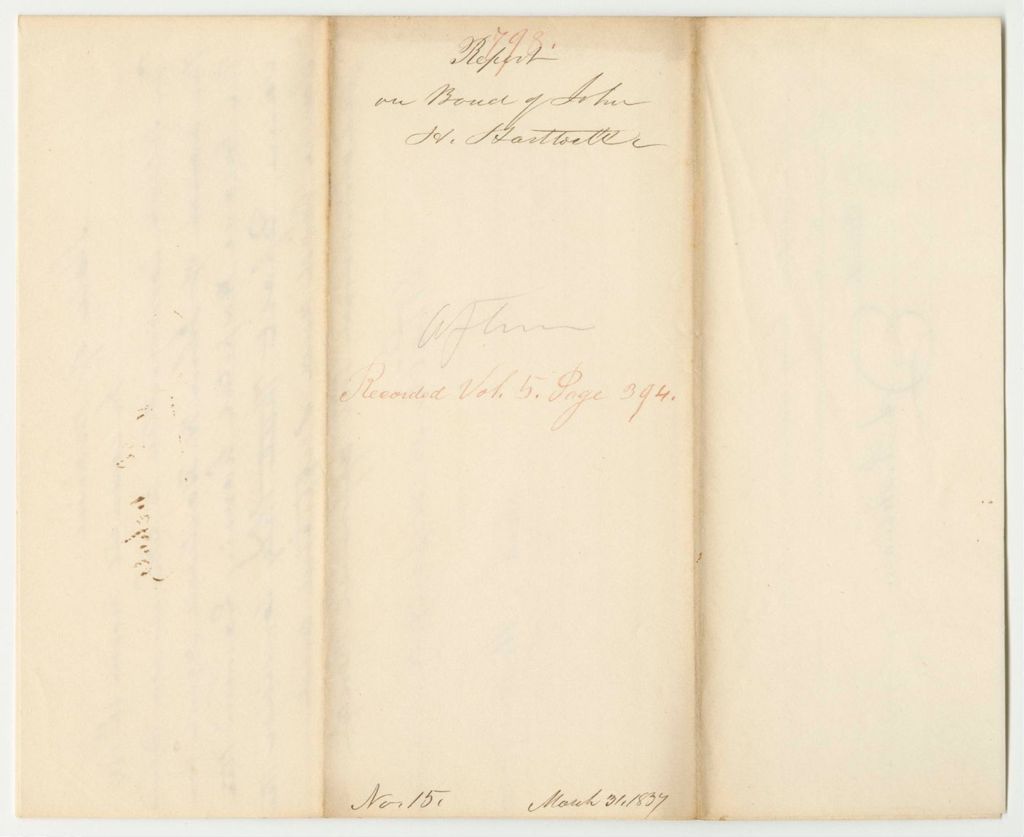 798.
Report
on Bond of John
H. Hartwell
Recorded Vol. 5. Page 394.
No. 15.
March 31. 1837